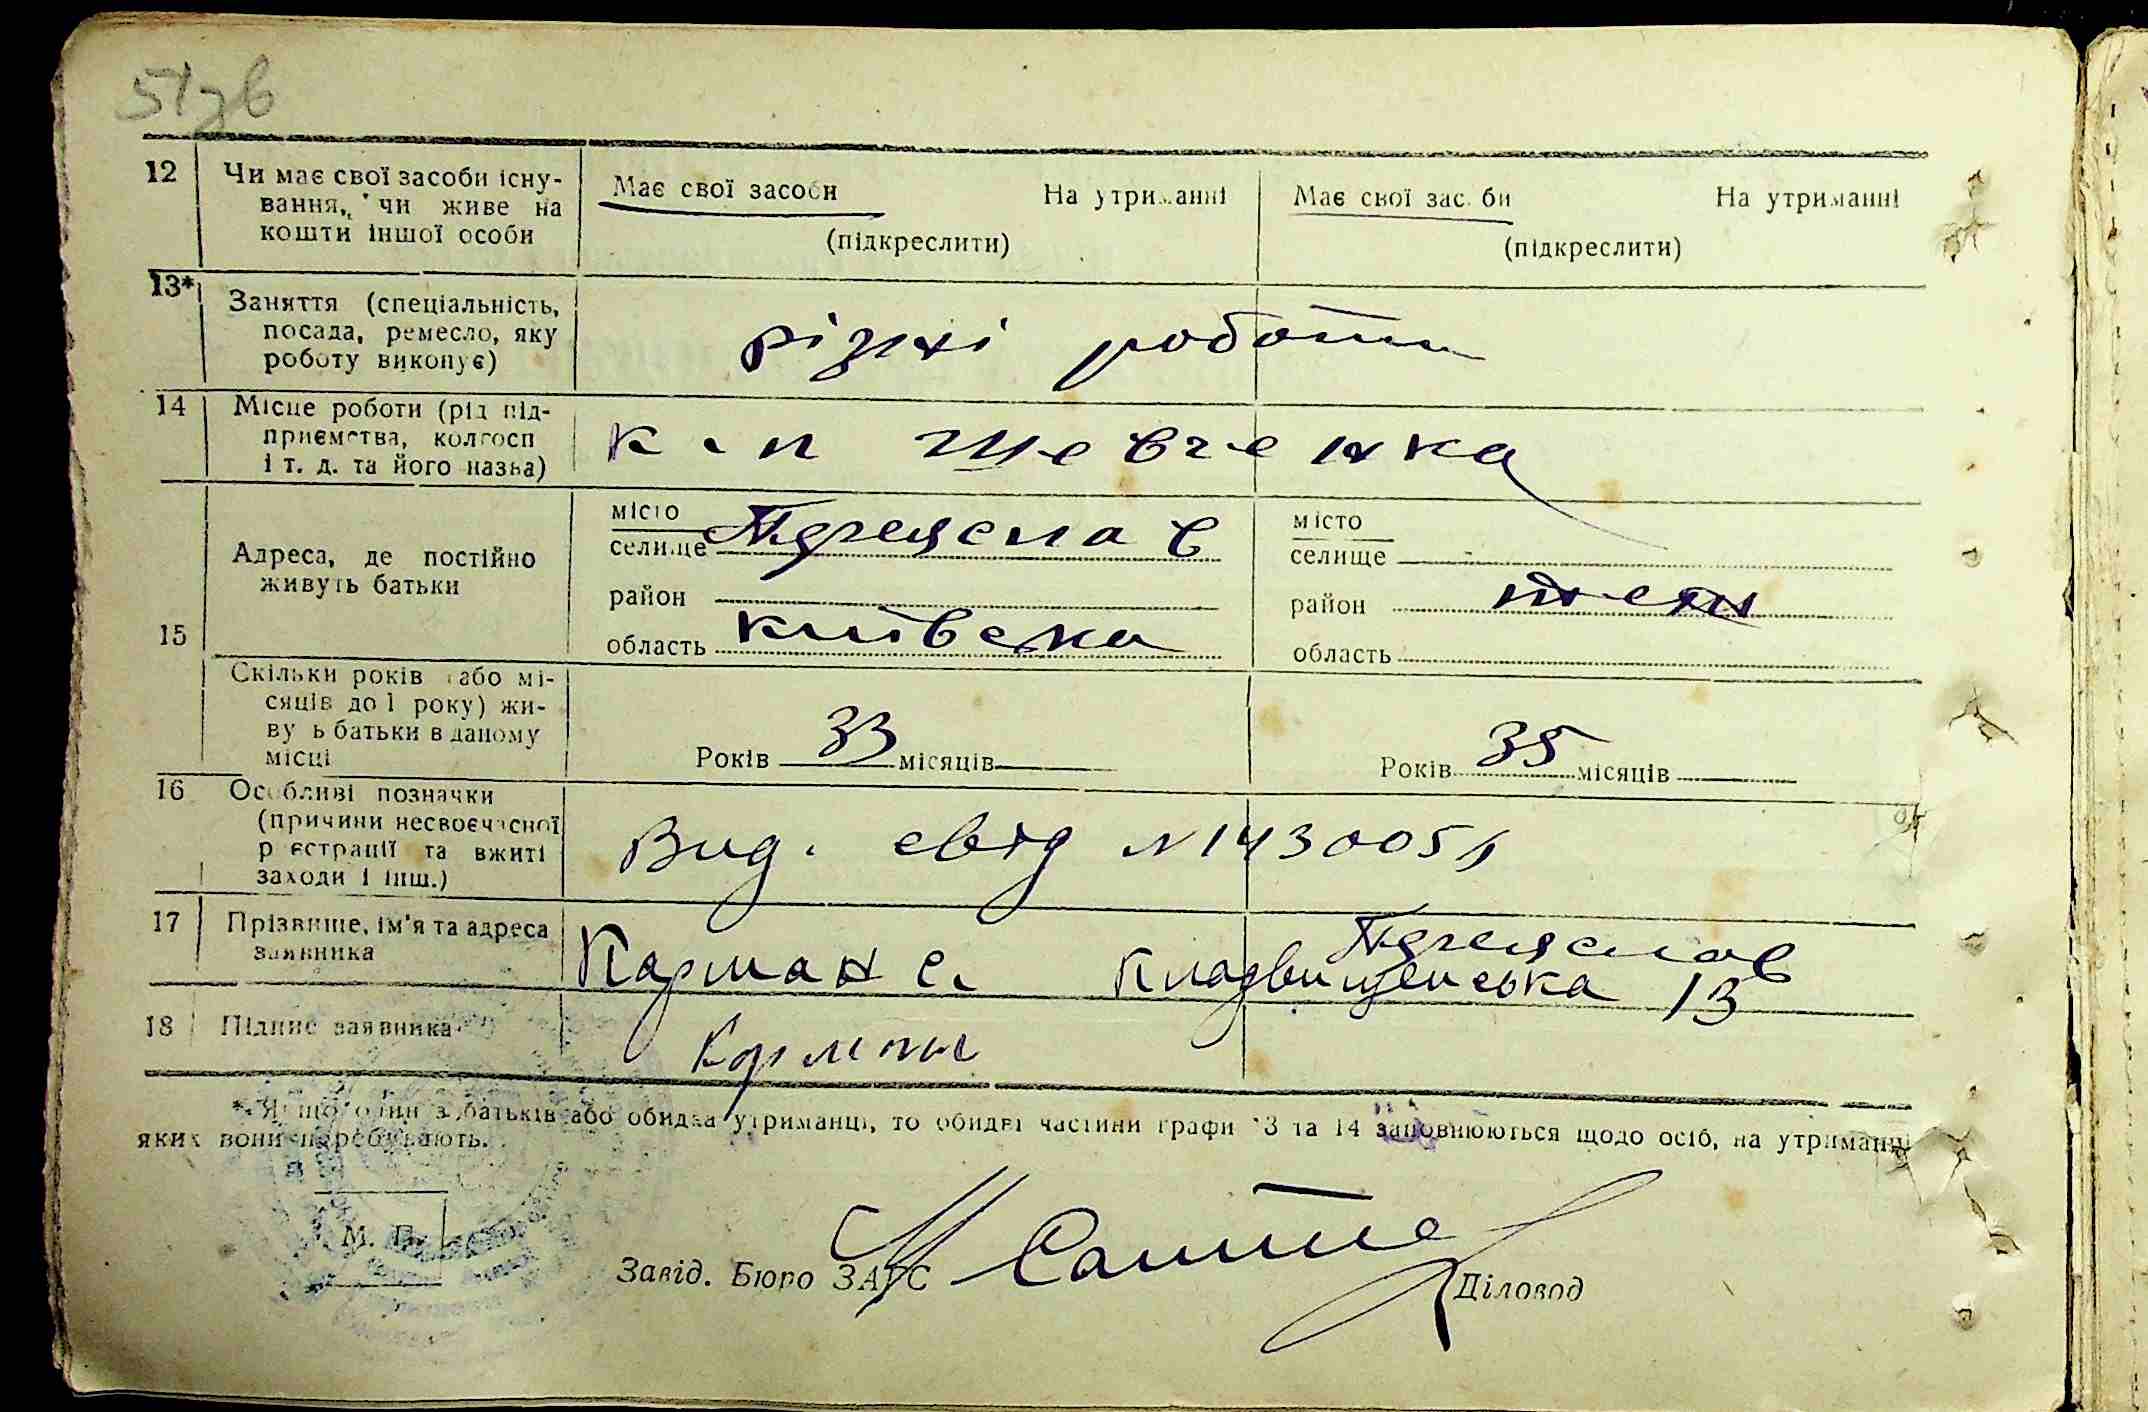 51зв
12 Чи має свої засоби існу-
вання, чи живе на
кошти іншої особи
Має свої засоби На утриманні
(підкреслити)
Має свої засоби На утриманні
(підкреслити)
13* Заняття (спеціальність,
посада, ремесло, яку
роботу виконує)
різні роботи
14 Місце роботи (рід під-
приємства, колгосп
і т. д. та його назва)
к-п Шевченка
15 Адреса, де постійно
живуть батьки
місто
селище Переяслав
район
область Київська
місто
селище
район теж
область
Скільки років (або мі-
сяців до 1 року) жи-
вуть батьки в даному
місці
Років 33 місяців
Років 35 місяців
16 Особливі позначки
(причини несвоєчасної
реєстрації та вжиті
заходи і інш.)
Вид. свід №143005
17 Прізвище, ім'я та адреса
заявника
Переяслав
Карман С. Кладвищенська 13
18 Підпис заявника
Карман
* Якщо один з батьків або обидва утриманці, то обидві частини графи 13 та 14 заповнюються щодо осіб, на утриманні
яких вони перебувають.
М. П.
Завід. Бюро ЗАГС Діловод